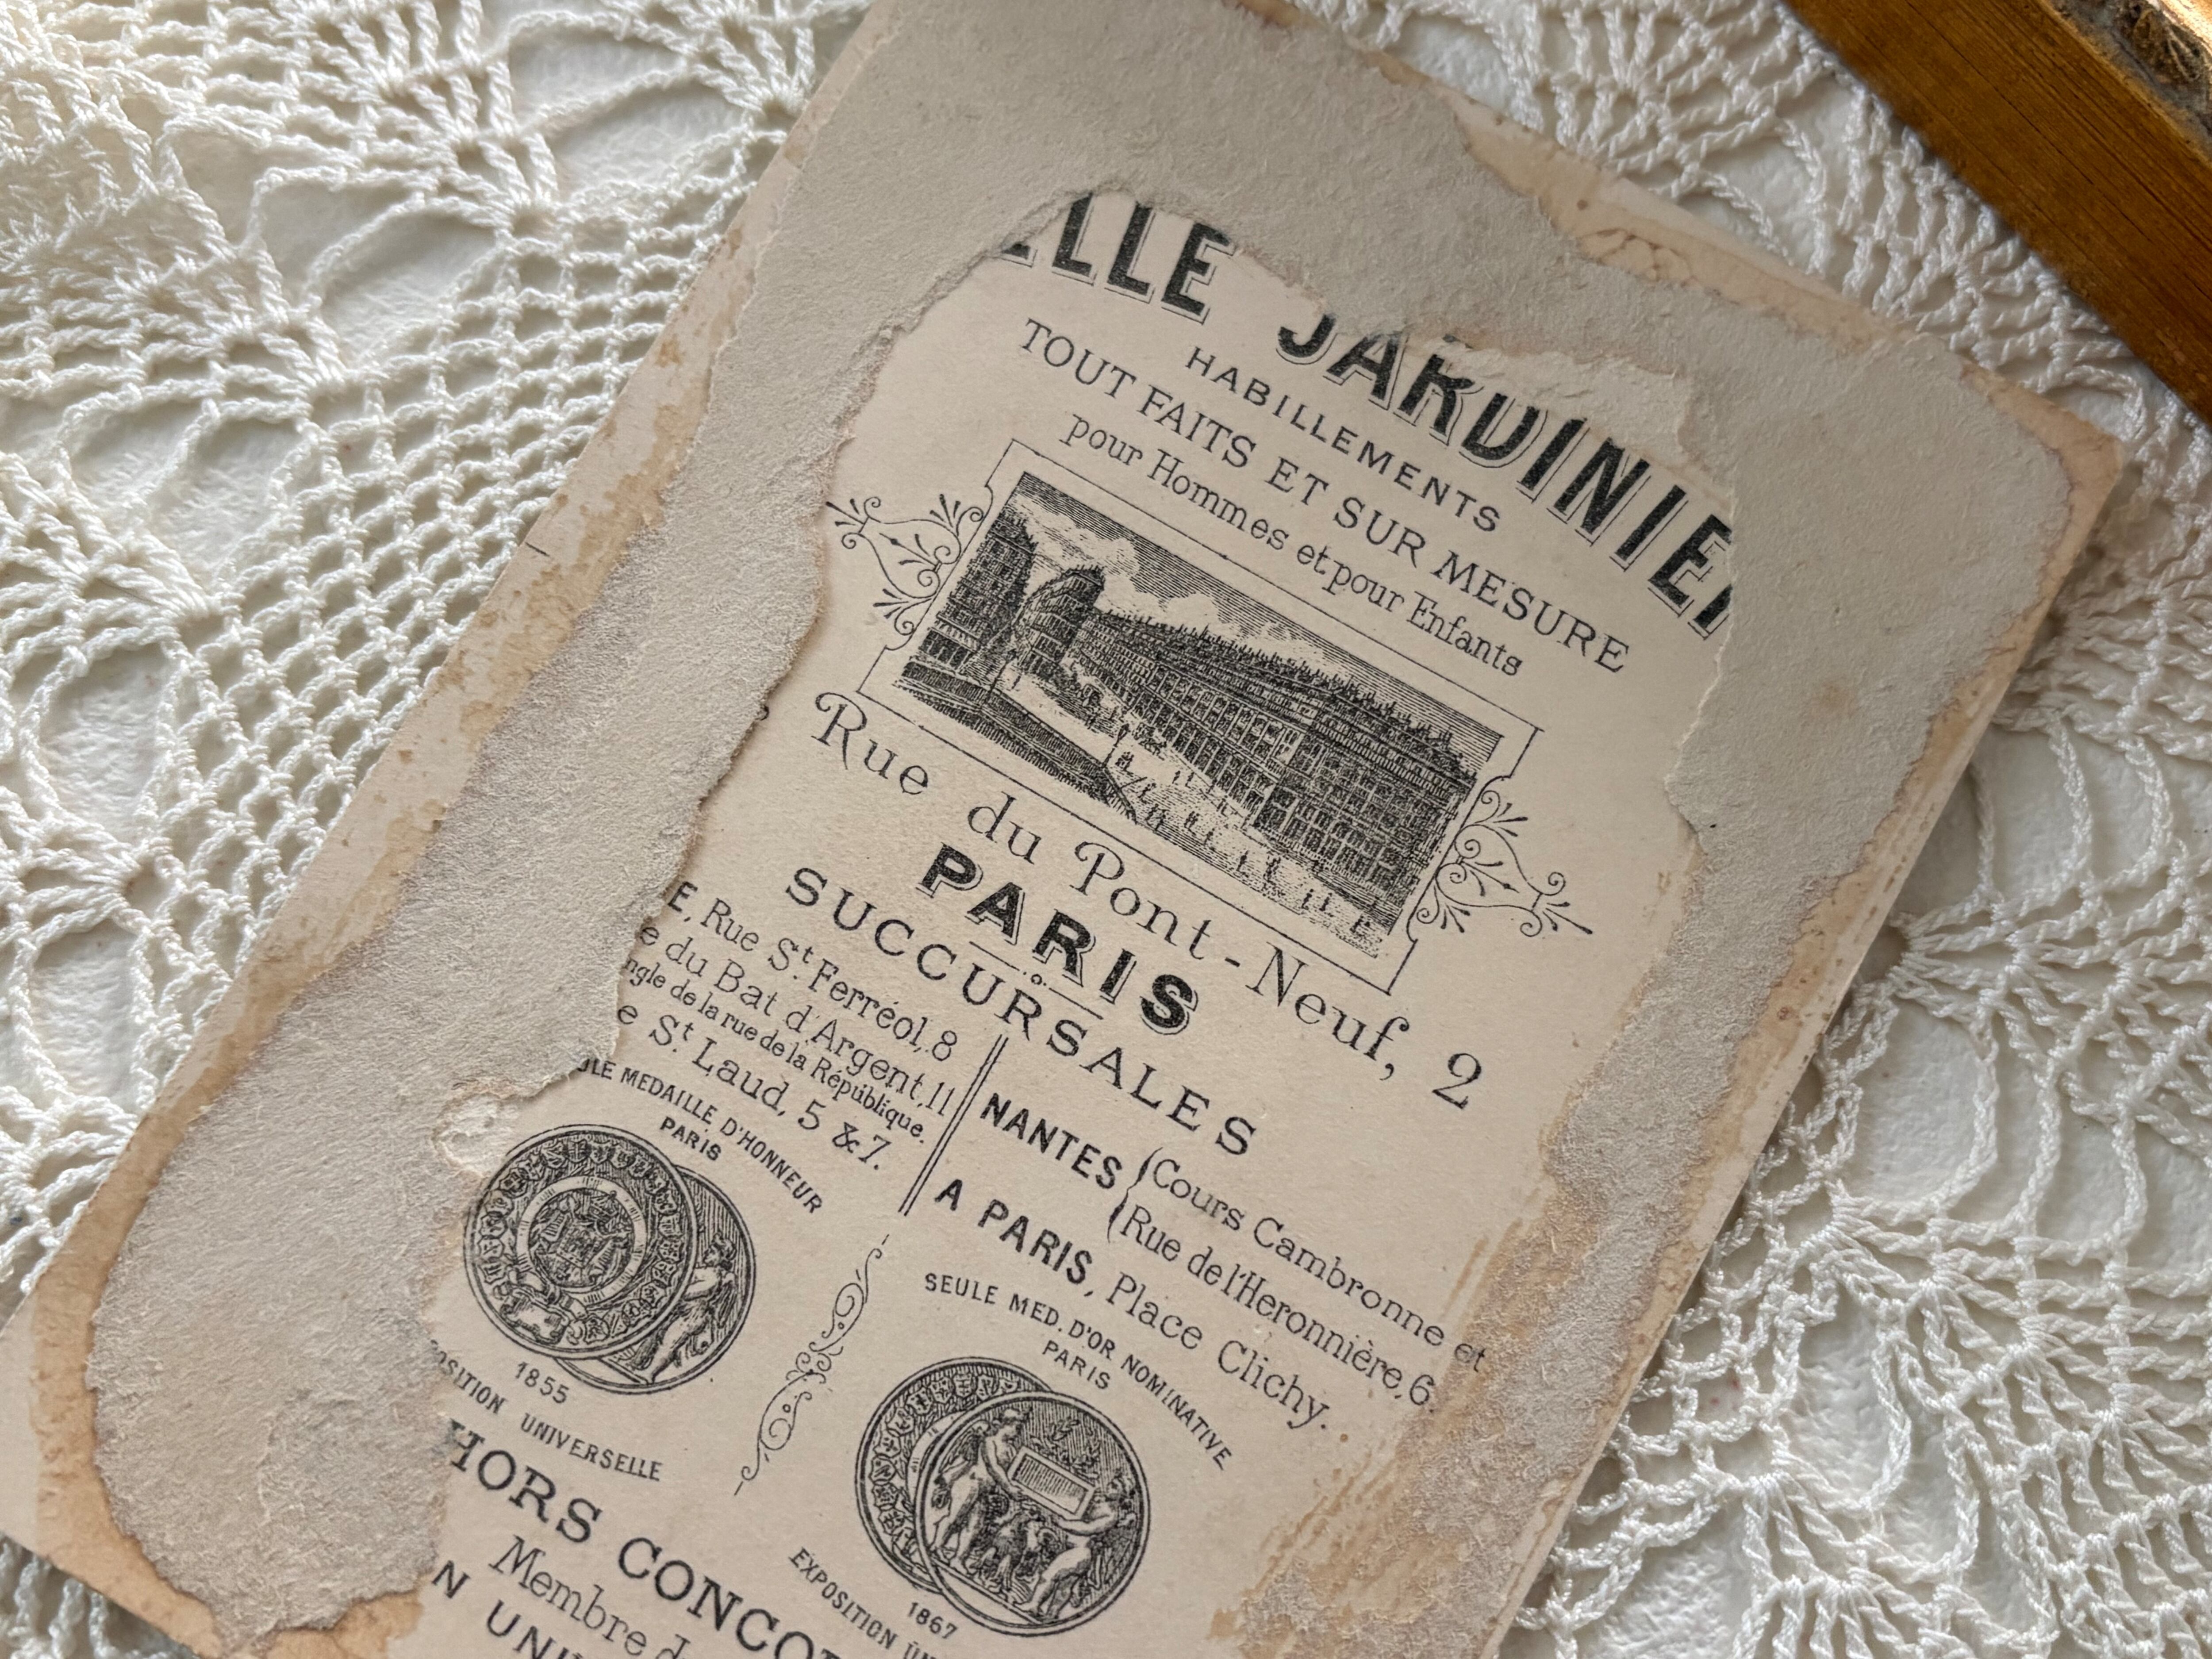 ELLE JARDINIER
HABILLEMENTS
TOUT FAITS ET SUR MESURE
pour Hommes et pour Enfants
Rue du Pont-Neuf, 2
PARIS
SUCCURSALES
E, Rue St. Ferréol, 8
e du Bat d'Argent, 11
ngle de la rue de la République.
e St. Laud, 5 & 7.
NANTES
Cours Cambronne et
Rue de l'Heronnière, 6.
A PARIS, Place Clichy.
ULE MEDAILLE D'HONNEUR
PARIS
1855
OSITION UNIVERSELLE
SEULE MED. D'OR NOMINATIVE
PARIS
1867
EXPOSITION UN
HORS CONCO
Membre d
N UNI